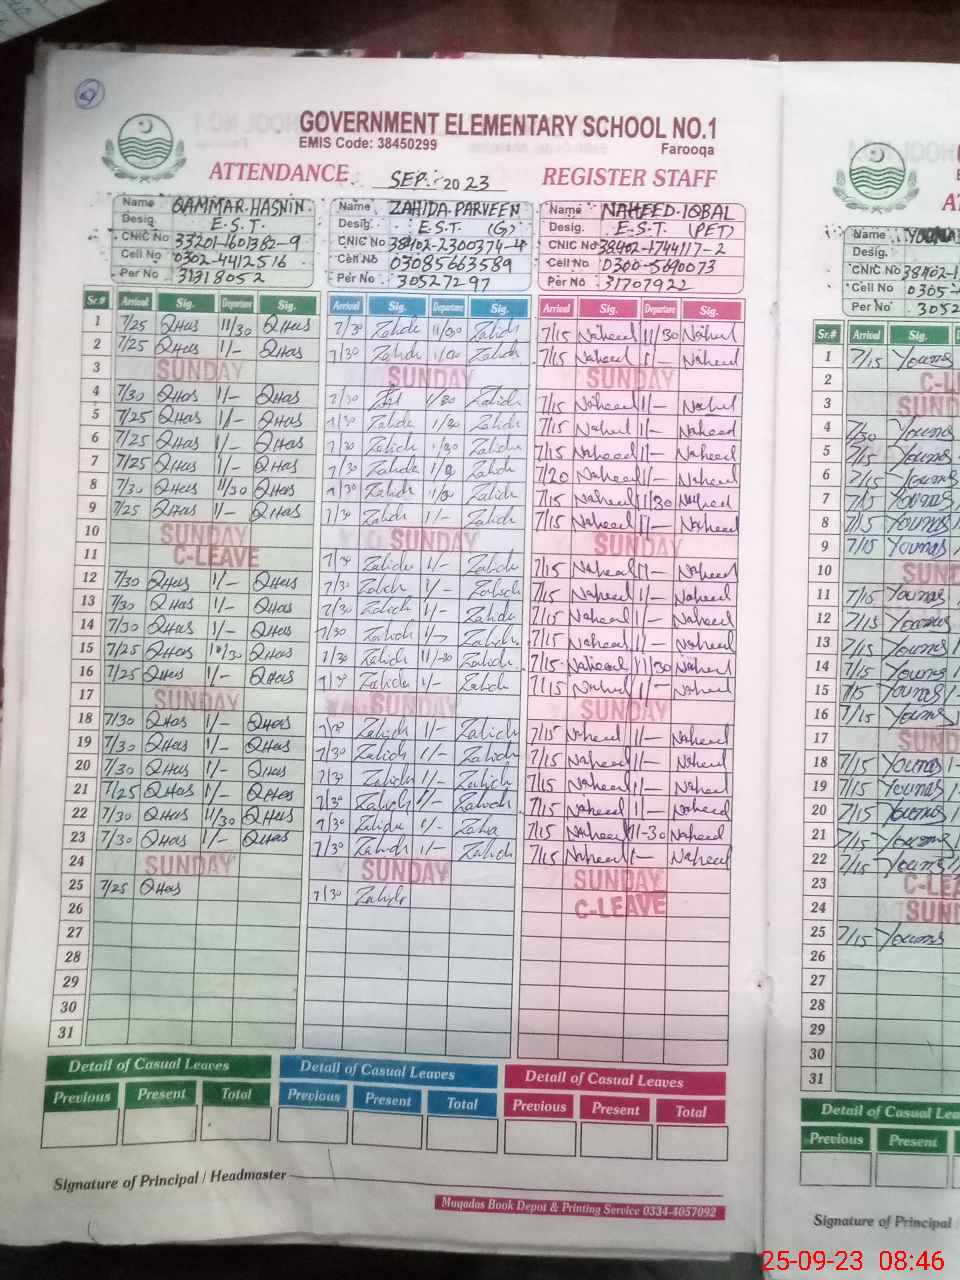 GOVERNMENT ELEMENTARY SCHOOL NO.1
EMIS Code: 38450299 Farooqa
ATTENDANCE SEP. 2023 REGISTER STAFF
Name QAMMAR HASNIN Name ZAHIDA PARVEEN Name NAHEED IQBAL
Desig. E.S.T. Desig. E.S.T (G) Desig. E.S.T (PET)
CNIC No 33201-1601382-9 CNIC No 38402-2300374-4 CNIC No 38402-1744117-2
Cell No 0302-4412516 Cell No 03085663589 Cell No 0300-5690073
Per No 31318052 Per No 30527297 Per No 31707922
Sr.# Arrival Sig. Departure Sig. Arrival Sig. Departure Sig. Arrival Sig. Departure Sig.
1 7/25 QHas 11/30 QHas 7/30 Zahida 11/30 Zahida 7/15 Naheed 11/30 Naheed
2 7/25 QHas 1/- QHas 7/30 Zahida Zahida 7/15 Naheed 1/- Naheed
3 SUNDAY SUNDAY SUNDAY
4 7/30 QHas 1/- QHas 7/30 Zahida 7/15 Naheed 1/- Naheed
5 7/25 QHas 1/- QHas 7/30 Zahida Zahida 7/15 Naheed 1/- Naheed
6 7/25 QHas 1/- QHas 7/30 Zahida Zahida 7/15 Naheed 1/- Naheed
7 7/25 QHas 1/- QHas 7/30 Zahida Zahida 7/20 Naheed 1/- Naheed
8 7/30 QHas 11/30 QHas 7/30 Zahida Zahida 7/15 Naheed 11/30 Naheed
9 7/25 QHas 1/- QHas 7/30 Zahida 1/- Zahida 7/15 Naheed 1/- Naheed
10 SUNDAY SUNDAY SUNDAY
11 C-LEAVE 7/30 Zahida 1/- Zahida 7/15 Naheed 1/- Naheed
12 7/30 QHas 1/- QHas 7/30 Zahida 1/- Zahida 7/15 Naheed 1/- Naheed
13 7/30 QHas 1/- QHas 7/30 Zahida 1/- Zahida 7/15 Naheed 1/- Naheed
14 7/30 QHas 1/- QHas 7/30 Zahida 1/- Zahida 7/15 Naheed 1/- Naheed
15 7/25 QHas QHas 7/30 Zahida 11/30 Zahida 7/15 Naheed 11/30 Naheed
16 7/25 QHas 1/- QHas 7/30 Zahida 1/- Zahida 7/15 Naheed 1/- Naheed
17 SUNDAY SUNDAY SUNDAY
18 7/30 QHas 1/- QHas 7/30 Zahida 1/- Zahida 7/15 Naheed 1/- Naheed
19 7/30 QHas 1/- QHas 7/30 Zahida 1/- Zahida 7/15 Naheed 1/- Naheed
20 7/30 QHas 1/- QHas 7/30 Zahida 1/- Zahida 7/15 Naheed 1/- Naheed
21 7/25 QHas 1/- QHas 7/30 Zahida 1/- Zahida 7/15 Naheed 1/- Naheed
22 7/30 QHas 11/30 QHas 7/30 Zahida 1/- Zahida 7/15 Naheed 11-30 Naheed
23 7/30 QHas 1/- QHas 7/30 Zahida 1/- Zahida 7/15 Naheed 1/- Naheed
24 SUNDAY SUNDAY SUNDAY
25 7/25 QHas 7/30 Zahida C-LEAVE
26
27
28
29
30
31
Detail of Casual Leaves Detail of Casual Leaves Detail of Casual Leaves
Previous Present Total Previous Present Total Previous Present Total
Signature of Principal / Headmaster
Muqadas Book Depot & Printing Service 0334-4057092
Name YOUNAS
Desig.
CNIC No 38402-1
Cell No 0305-
Per No 3052
Sr.# Arrival Sig.
1 7/15 Younas
2
3
4 7/30 Younas
5 7/15 Younas
6 7/15 Younas
7 7/15 Younas
8 7/15 Younas
9 7/15 Younas
10
11 7/15 Younas
12 7/15 Younas
13 7/15 Younas
14 7/15 Younas
15 7/15 Younas
16 7/15 Younas
17
18 7/15 Younas
19 7/15 Younas
20 7/15 Younas
21 7/15 Younas
22 7/15 Younas
23
24
25 7/15 Younas
26
27
28
29
30
31
Detail of Casual
Previous Present
Signature of Principal
25-09-23 08:46